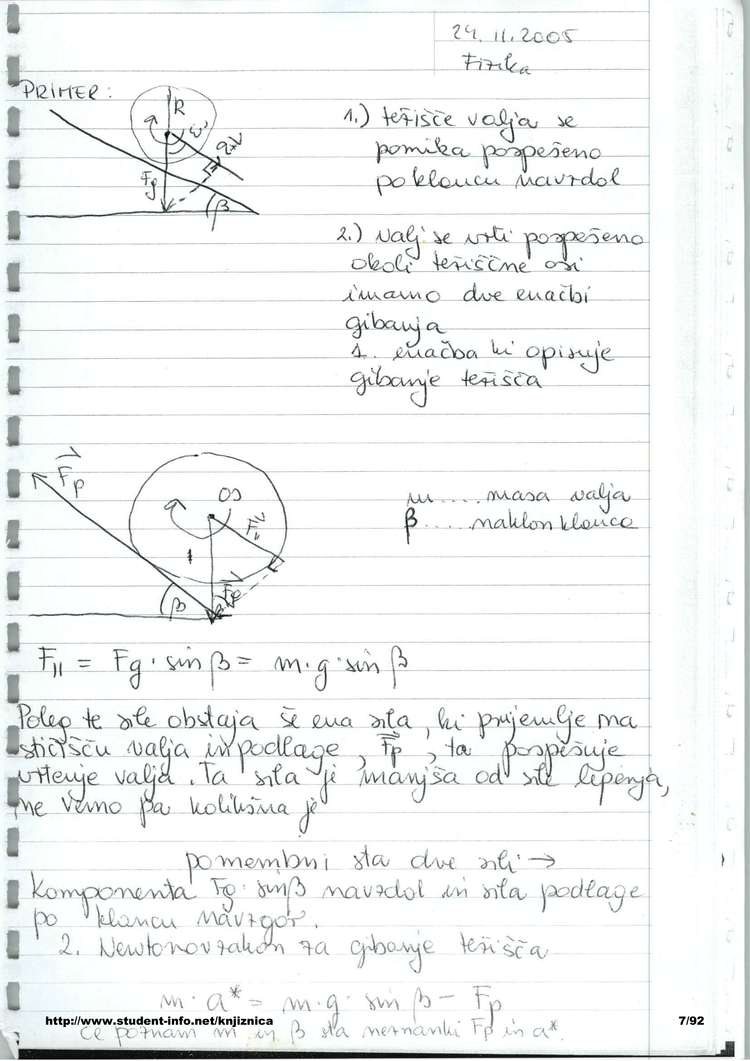 24.11.2005
Fizika
PRIMER:
R
Fg
β
1.) težišče valja se
pomika pospešeno
po klancu navzdol
2.) valj se vrti pospešeno
okoli težiščne osi
imamo dve enačbi
gibanja
1. enačba ki opisuje
gibanje težišča
Fp
OS
F||
Fg
β
m .... masa valja
β ..... naklon klanca
F|| = Fg · sin β = m · g · sin β
Poleg te sile obstaja še ena sila, ki prijemlje na
stičišču valja in podlage, Fp, ta pospešuje
vrtenje valja. Ta sila je manjša od sile lepenja,
ne vemo pa kolikšna je
pomembni sta dve sili →
komponenta Fg · sinβ navzdol in sila podlage
po klancu navzgor.
2. Newtonov zakon za gibanje težišča
m · a* = m · g · sin β - Fp
http://www.student-info.net/knjiznica
7/92
če poznam m in β sta neznanki Fp in a*.